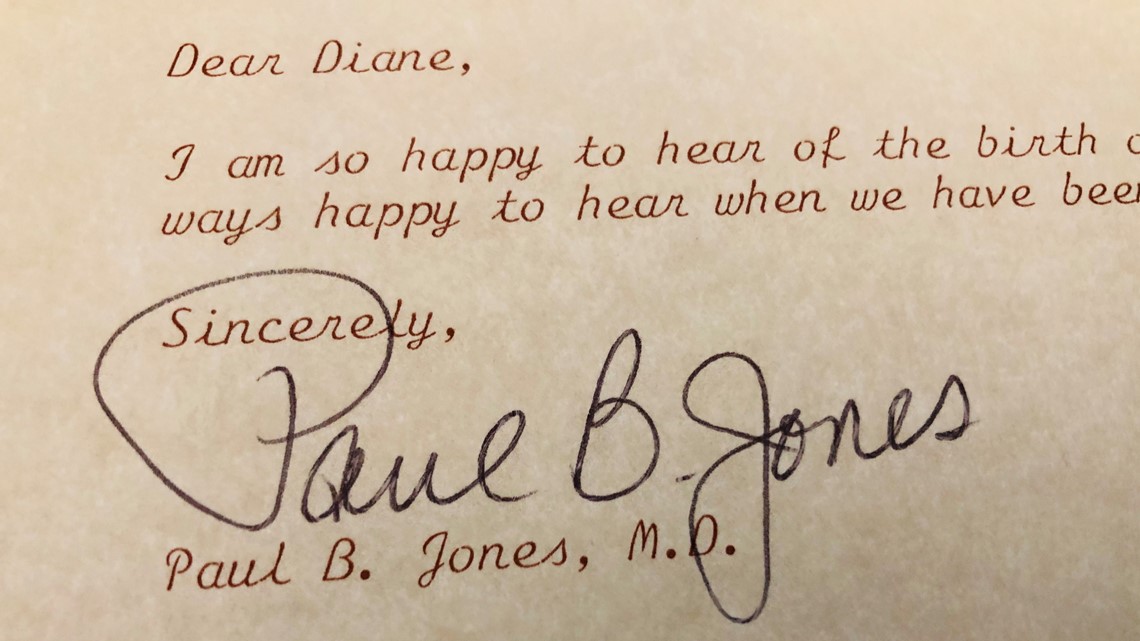 Dear Diane,
I am so happy to hear of the birth
ways happy to hear when we have been
Sincerely,
Paul B. Jones
Paul B. Jones, M.D.